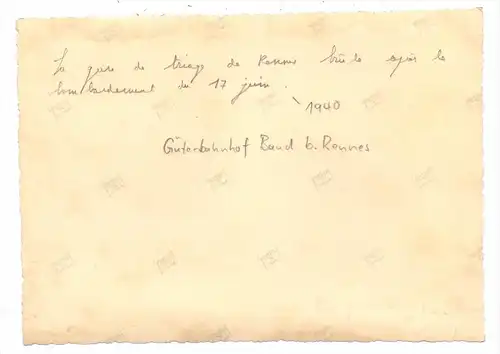 La gare de triage de Rennes brûle après le
bombardement du 17 juin.
1940
Güterbahnhof Baud b. Rennes